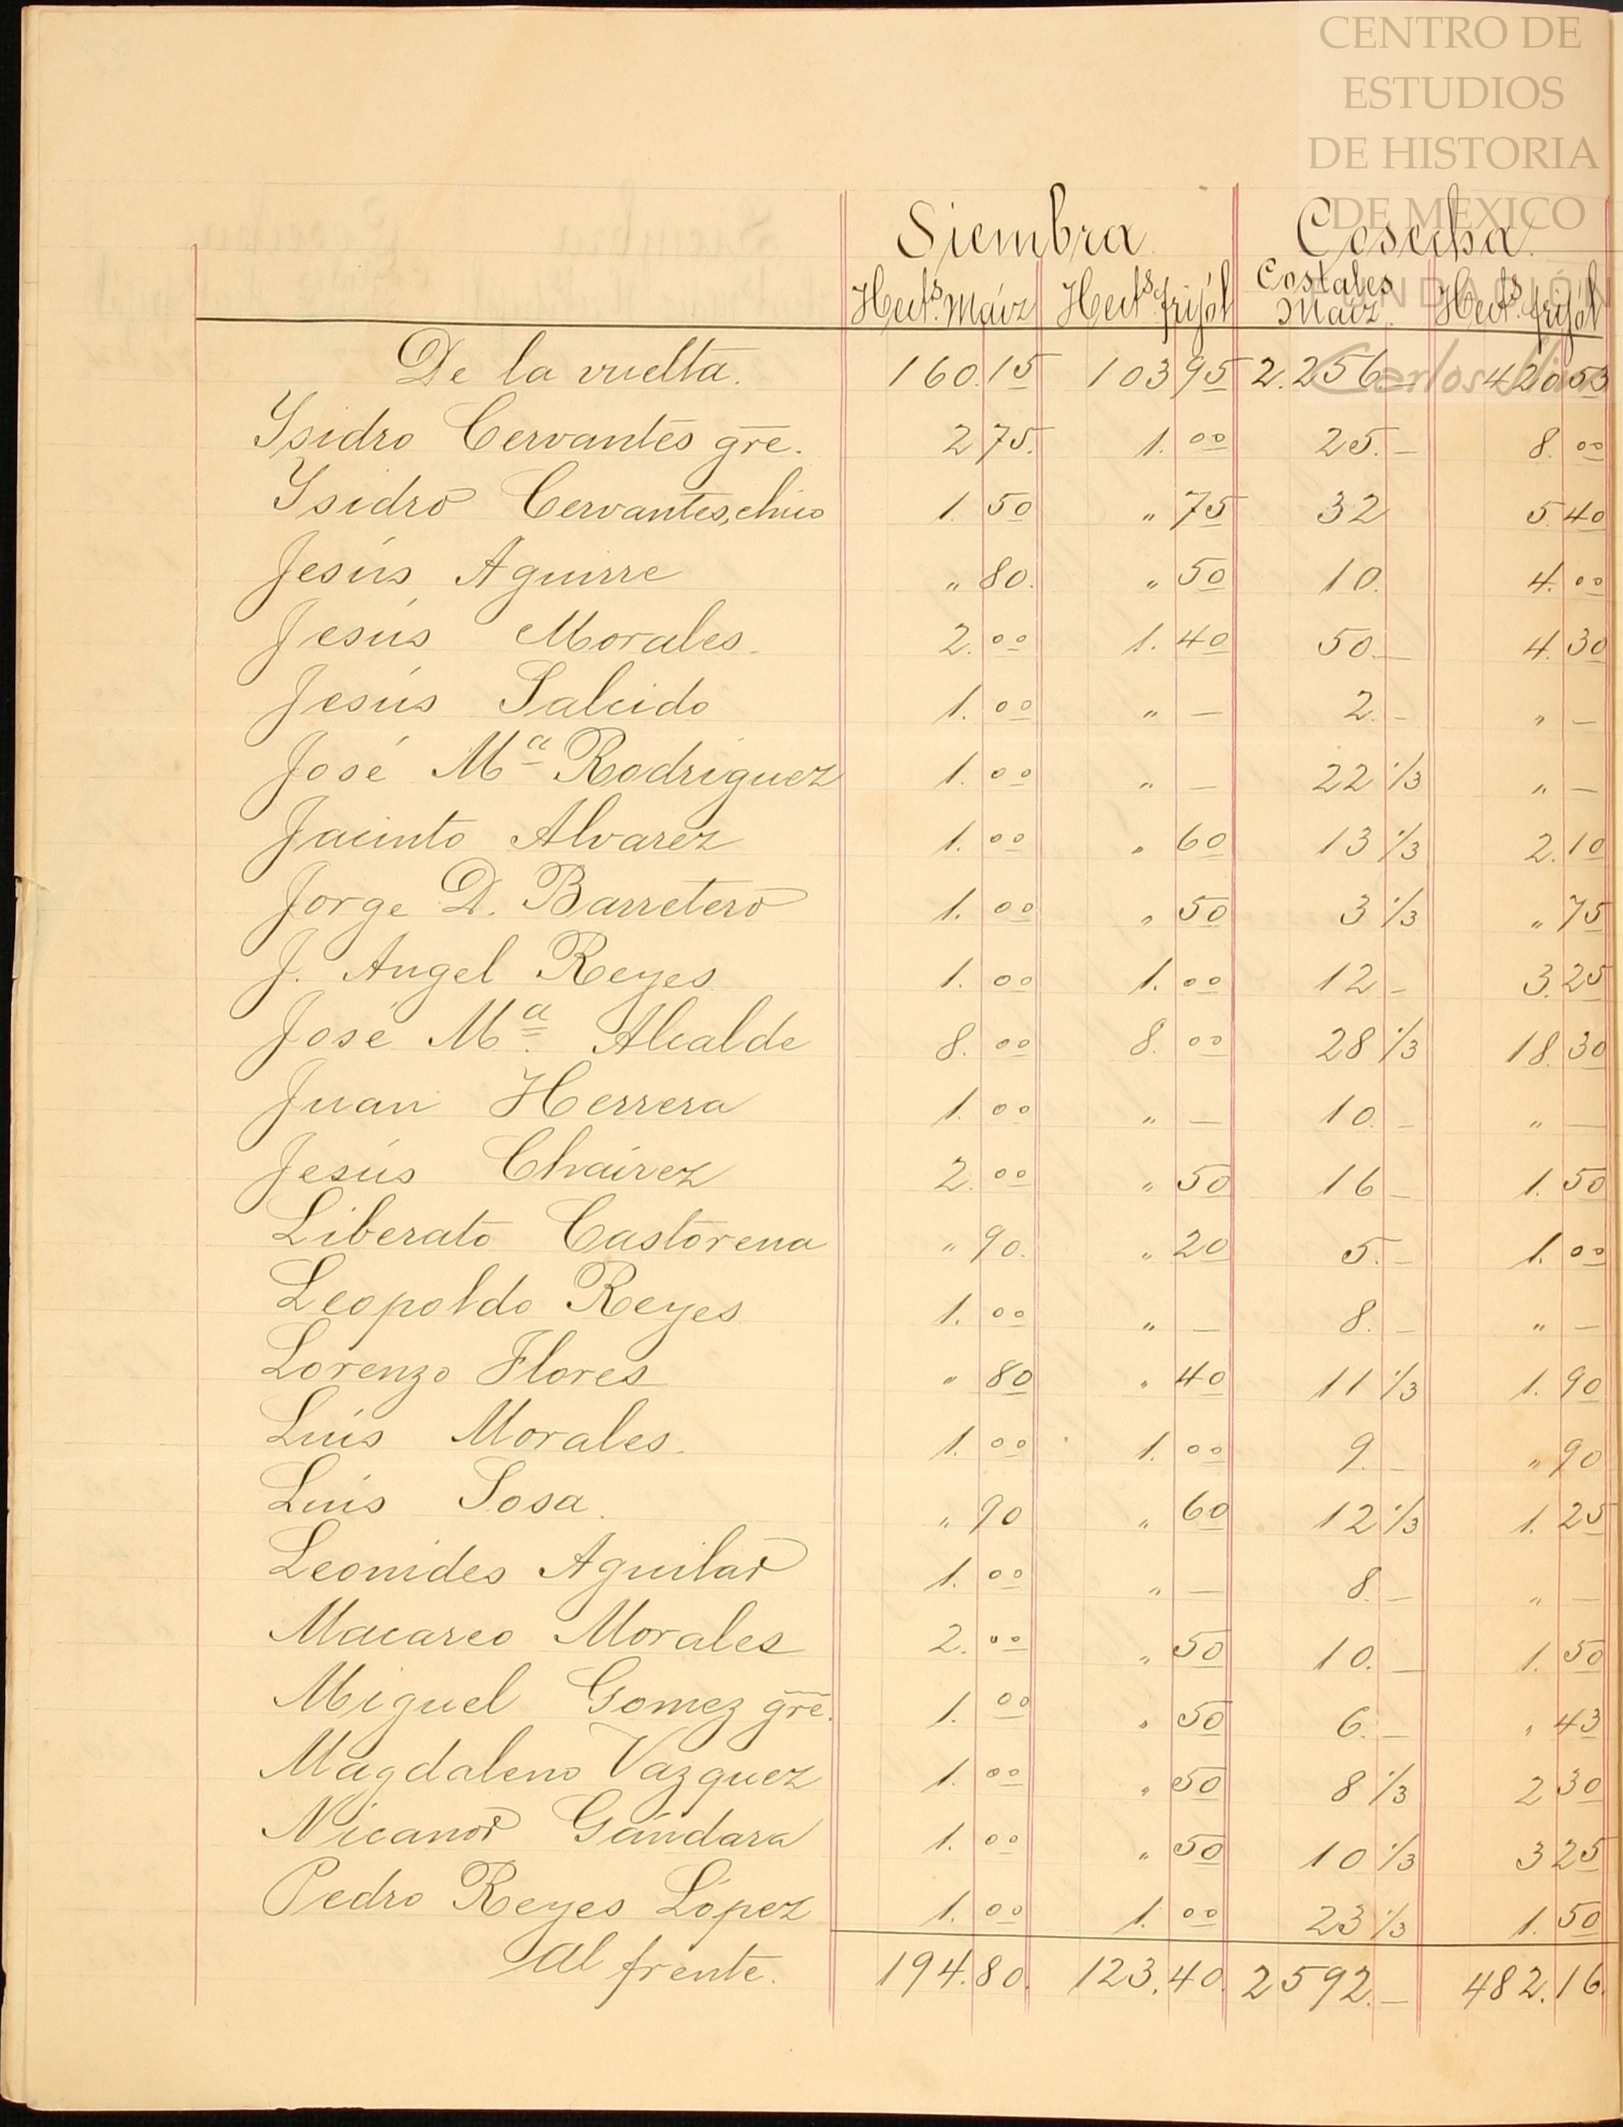 CENTRO DE
ESTUDIOS
DE HISTORIA
DE MEXICO
FUNDACIÓN
Carlos Slim
Siembra. Cosecha.
Hect.s Maíz Hect.s frijól Costales Maíz. Hect.s frijól
De la vuelta. 160.15 103 95 2.256 — 420 53
Ysidro Cervantes gre. 2 75. 1. 00 25. — 8. 00
Ysidro Cervantes, chico 1. 50 " 75 32 5 40
Jesús Aguirre " 80. " 50 10. 4. 00
Jesús Morales. 2. 00 1. 40 50. — 4. 30
Jesús Salcido 1. 00 " — 2. — " —
José Ma Rodriguez 1. 00 " — 22 1/3 " —
Jacinto Alvarez 1. 00 " 60 13 1/3 2. 10
Jorge D. Barretero 1. 00 " 50 3 1/3 " 75
J. Angel Reyes 1. 00 1. 00 12 — 3. 25
José Ma. Alcalde 8. 00 8. 00 28 1/3 18. 30
Juan Herrera 1. 00 " — 10. — " —
Jesús Cháirez 2. 00 " 50 16 — 1. 50
Liberato Castorena " 90. " 20 5. — 1. 00
Leopoldo Reyes 1. 00 " — 8. — " —
Lorenzo Flores " 80 " 40 11 1/3 1. 90
Luis Morales. 1. 00 1. 00 9. — " 90
Luis Sosa. " 90 " 60 12 1/3 1. 25
Leonides Aguilar 1. 00 " — 8. — " —
Macareo Morales 2. 00 " 50 10. — 1. 50
Miguel Gomez gre. 1. 00 " 50 6. — " 43
Magdaleno Vazquez 1. 00 " 50 8 1/3 2 30
Nicanor Gándara 1. 00 " 50 10 1/3 3 25
Pedro Reyes López 1. 00 1. 00 23 1/3 1. 50
Al frente. 194.80. 123.40. 2592. — 482.16.